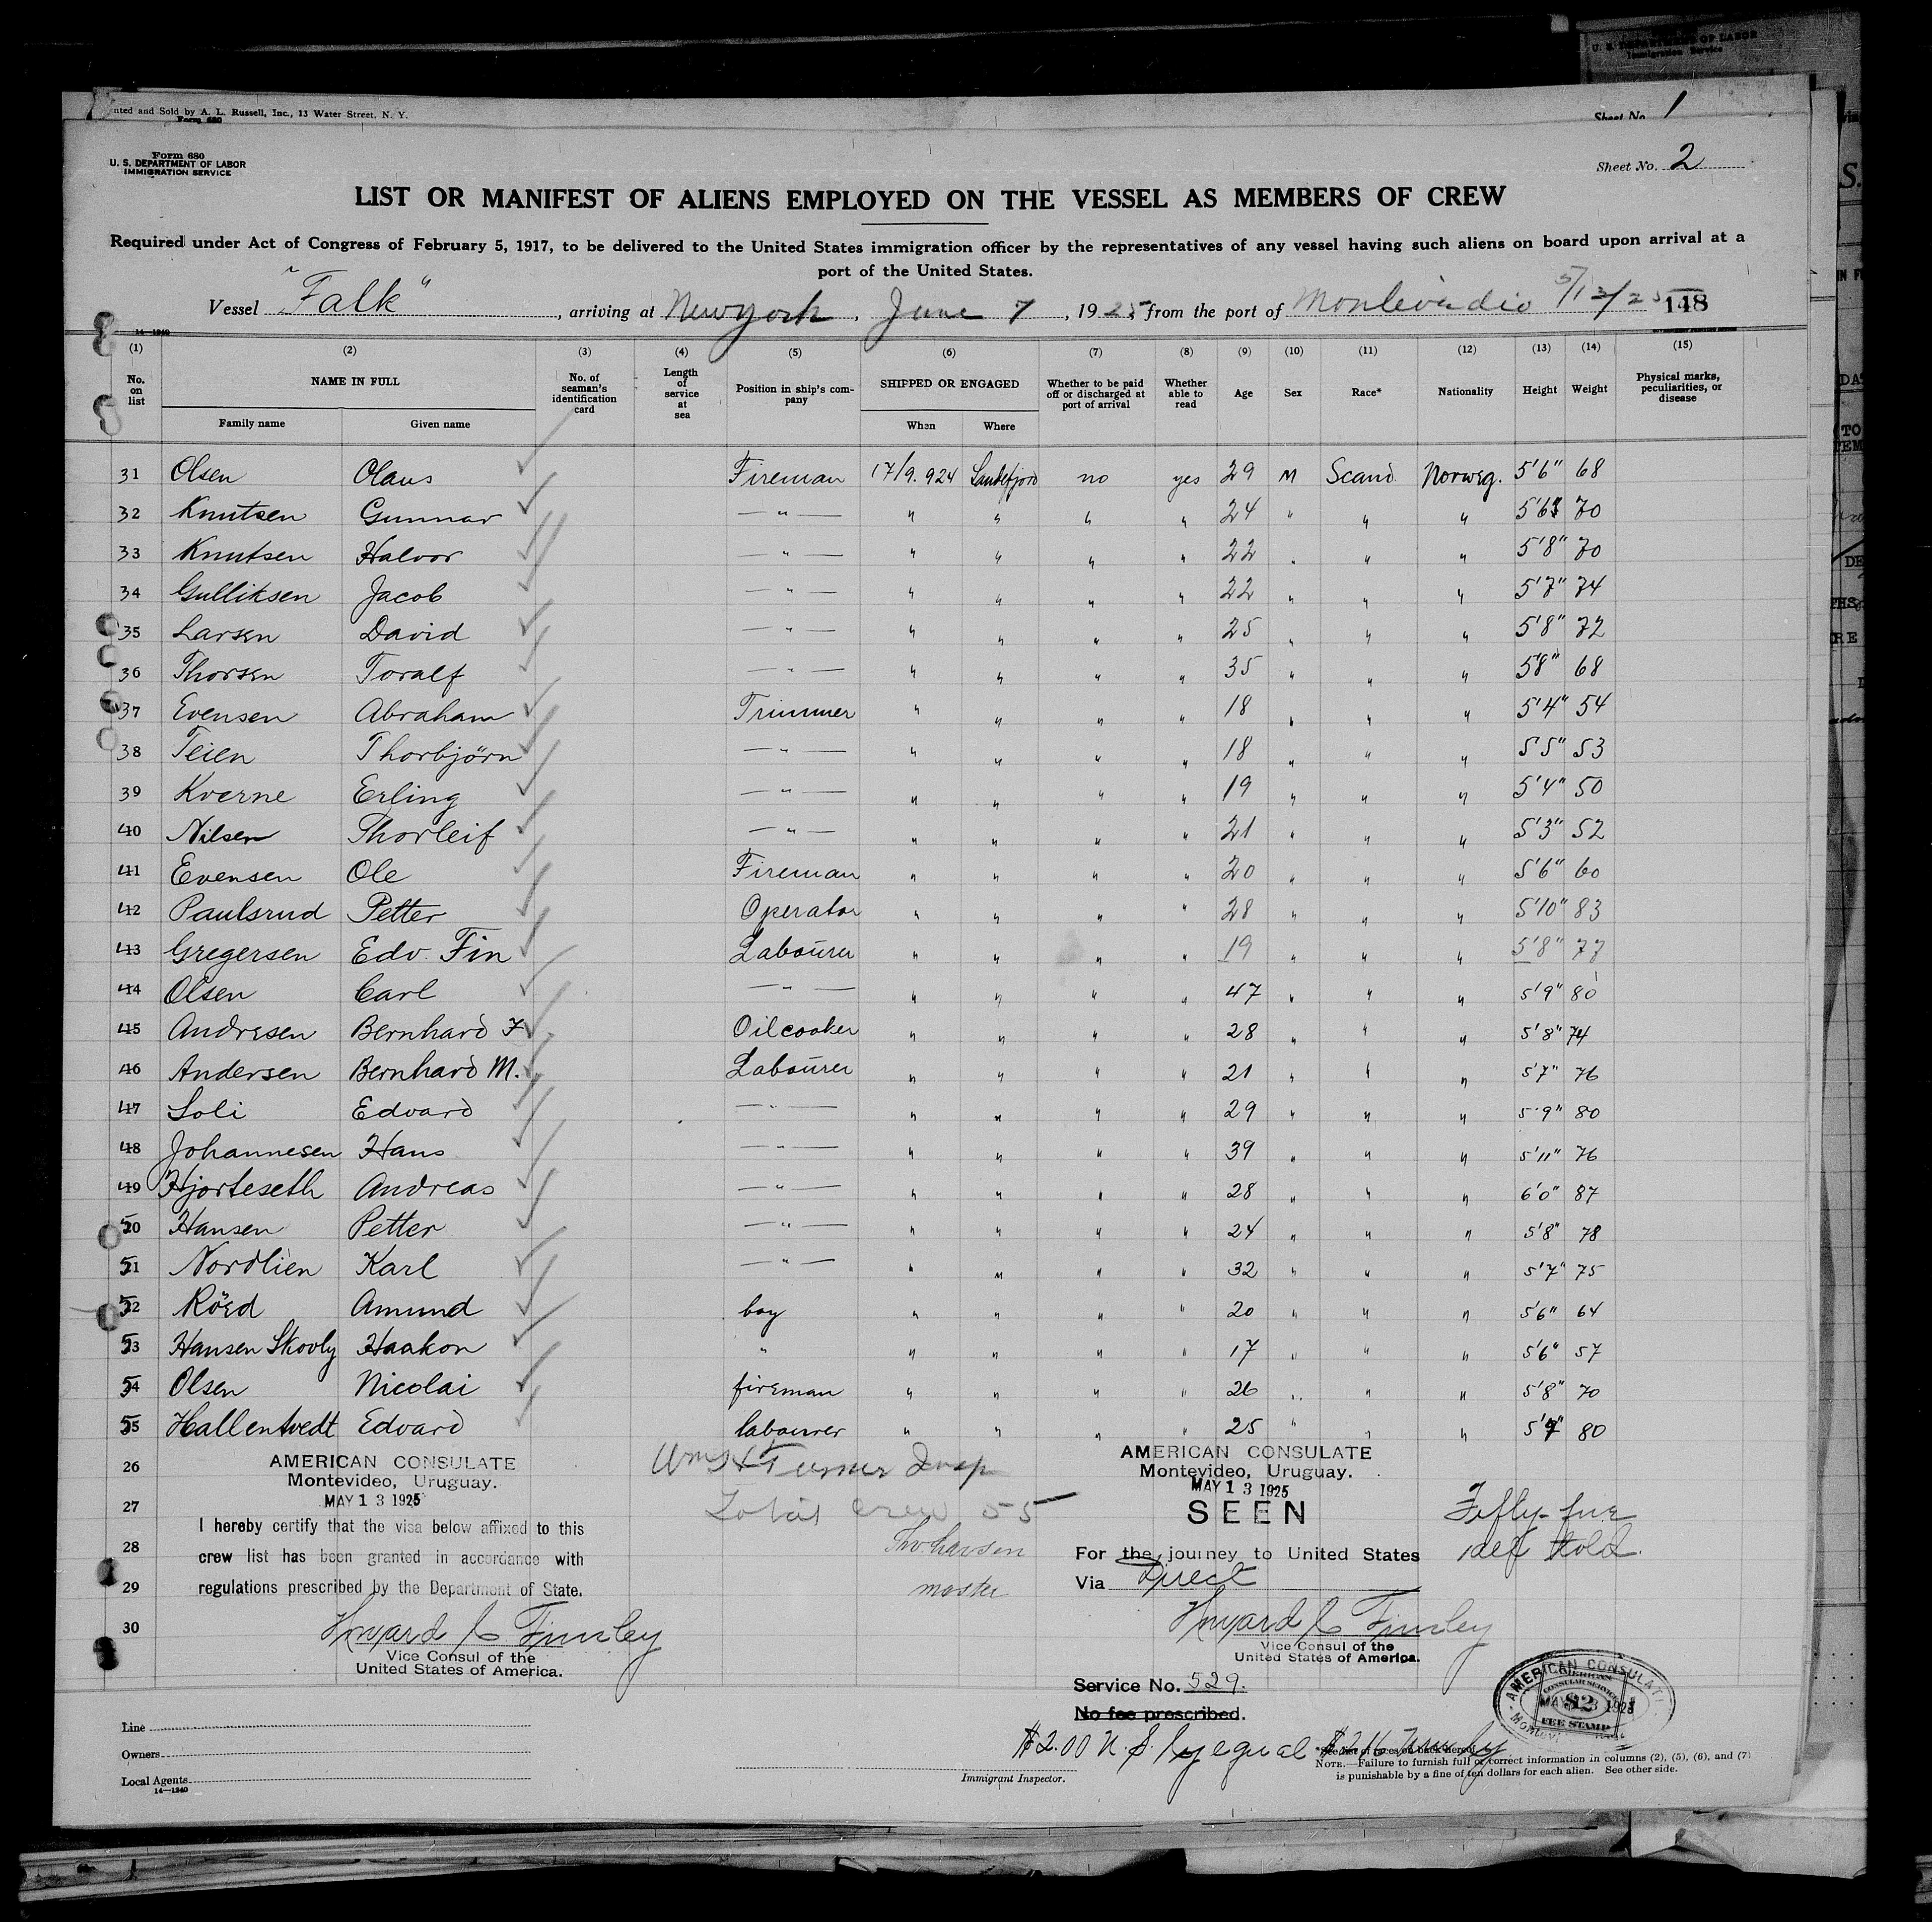 U. S. DEPARTMENT OF LABOR
Immigration Service
Printed and Sold by A. L. Russell, Inc., 13 Water Street, N. Y.
Form 680
Sheet No. 1
Form 680
U. S. DEPARTMENT OF LABOR
IMMIGRATION SERVICE
Sheet No. 2
LIST OR MANIFEST OF ALIENS EMPLOYED ON THE VESSEL AS MEMBERS OF CREW
Required under Act of Congress of February 5, 1917, to be delivered to the United States immigration officer by the representatives of any vessel having such aliens on board upon arrival at a
port of the United States.
Vessel "Falk", arriving at New York, June 7, 1925, from the port of Montevideo 5/13/25 148
14—1240
(1) (2) (3) (4) (5) (6) (7) (8) (9) (10) (11) (12) (13) (14) (15)
No. on list NAME IN FULL No. of seaman's identification card Length of service at sea Position in ship's company SHIPPED OR ENGAGED Whether to be paid off or discharged at port of arrival Whether able to read Age Sex Race* Nationality Height Weight Physical marks, peculiarities, or disease
Family name Given name When Where
31 Olsen Olaus Fireman 17/9.924 Sandefjord no yes 29 M Scand. Norweg. 5'6" 68
32 Knutsen Gunnar — " — " " " " 24 " " " 5'6" 70
33 Knutsen Halvor — " — " " " " 22 " " " 5'8" 70
34 Gulliksen Jacob — " — " " " " 22 " " " 5'7" 74
35 Larsen David — " — " " " " 25 " " " 5'8" 72
36 Thorsen Toralf — " — " " " " 35 " " " 5'8" 68
37 Evensen Abraham Trimmer " " " " 18 " " " 5'4" 54
38 Teien Thorbjörn — " — " " " " 18 " " " 5'5" 53
39 Kverne Erling — " — " " " " 19 " " " 5'4" 50
40 Nilsen Thorleif — " — " " " " 21 " " " 5'3" 52
41 Evensen Ole Fireman " " " " 20 " " " 5'6" 60
42 Paulsrud Petter Operator " " " " 28 " " " 5'10" 83
43 Gregersen Edv. Fin Labourer " " " " 19 " " " 5'8" 77
44 Olsen Carl — " — " " " " 47 " " " 5'9" 80
45 Andresen Bernhard F Oilcooker " " " " 28 " " " 5'8" 74
46 Andersen Bernhard M. Labourer " " " " 21 " " " 5'7" 76
47 Soli Edvard — " — " " " " 29 " " " 5'9" 80
48 Johannesen Hans — " — " " " " 39 " " " 5'11" 76
49 Hjorteseth Andreas — " — " " " " 28 " " " 6'0" 87
50 Hansen Petter — " — " " " " 24 " " " 5'8" 78
51 Nordlien Karl — " — " " " " 32 " " " 5'7" 75
52 Röed Amund boy " " " " 20 " " " 5'6" 64
53 Hansen Skovly Haakon " " " " " 17 " " " 5'6" 57
54 Olsen Nicolai fireman " " " " 26 " " " 5'8" 70
55 Hallentvedt Edvard labourer " " " " 25 " " " 5'9" 80
26 27 28 29 30
AMERICAN CONSULATE
Montevideo, Uruguay.
MAY 13 1925
I hereby certify that the visa below affixed to this
crew list has been granted in accordance with
regulations prescribed by the Department of State.
Howard C Finley
Vice Consul of the
United States of America.
Turner Insp
Total crew 55
Thv hansen
master
AMERICAN CONSULATE
Montevideo, Uruguay.
MAY 13 1925
SEEN
For the journey to United States
Via Direct
Fifty-five
told.
Howard C Finley
Vice Consul of the
United States of America.
Service No. 529.
No fee prescribed.
$2.00 U.S. equal
AMERICAN CONSULATE
AMERICAN
CONSULAR SERVICE
$2
FEE STAMP
Line
Owners
Local Agents
14—1240
Immigrant Inspector.
*See list of races on back hereof.
NOTE.—Failure to furnish full or correct information in columns (2), (5), (6), and (7)
is punishable by a fine of ten dollars for each alien. See other side.